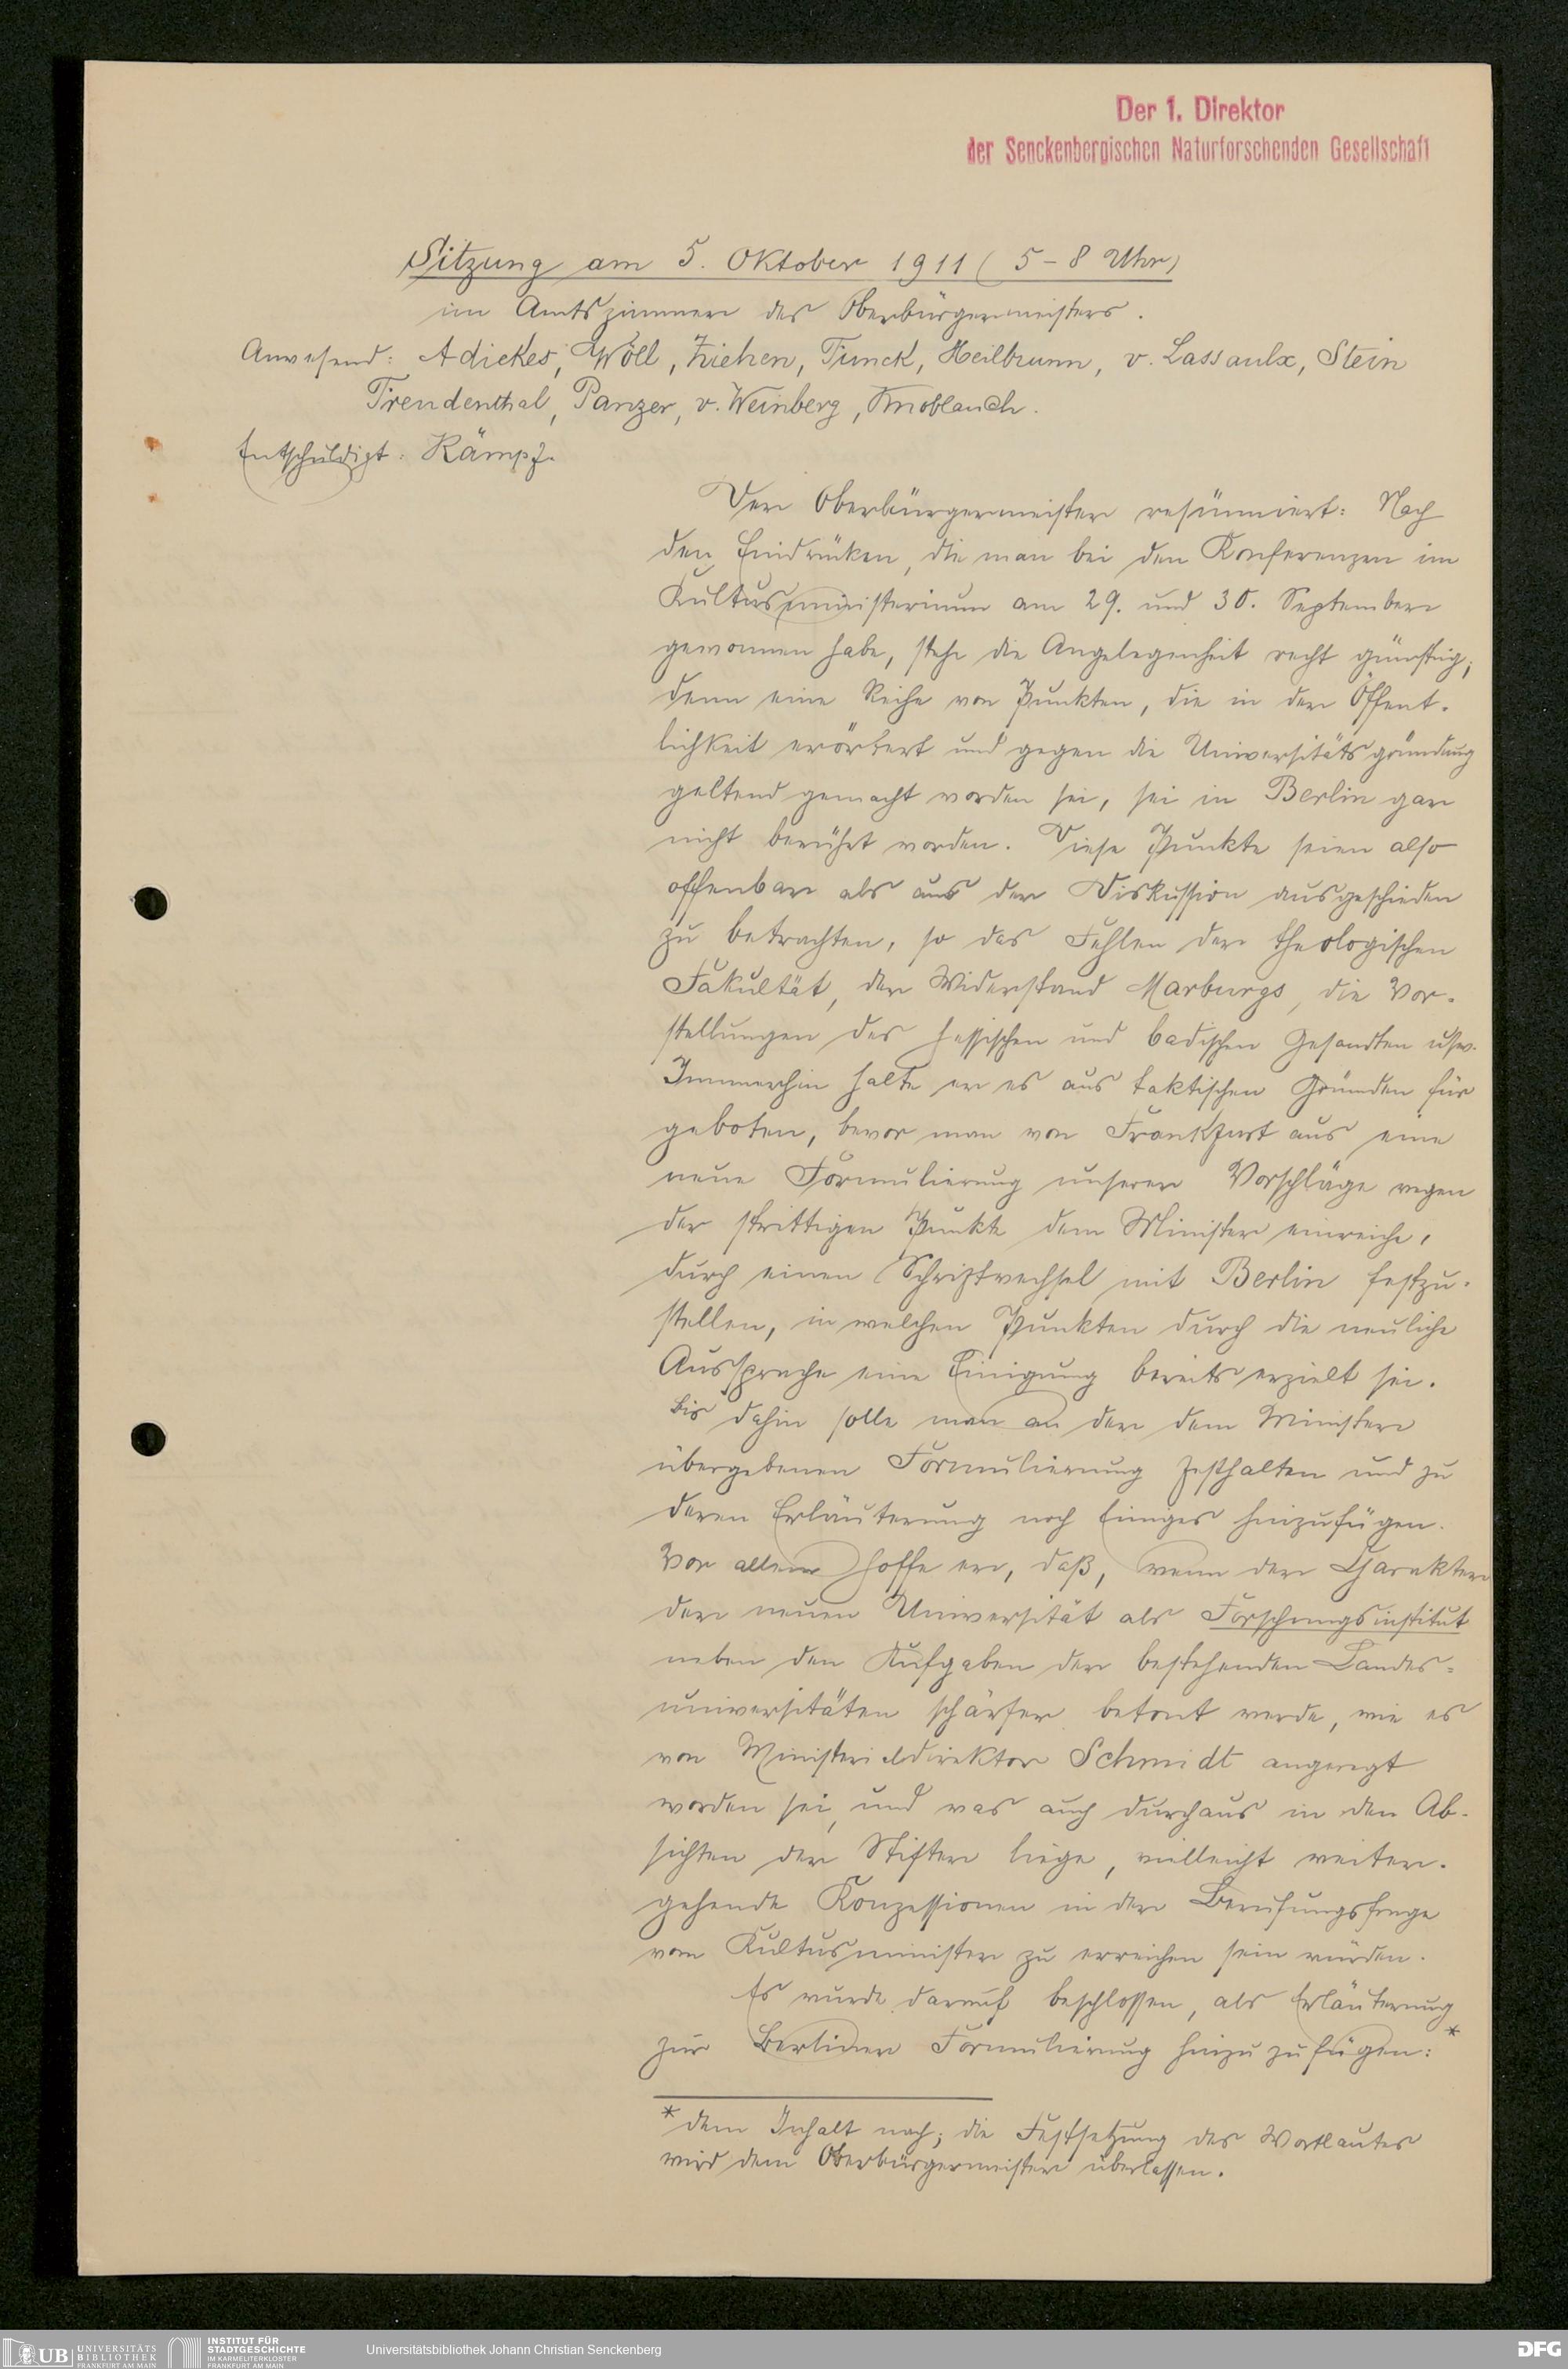 Der 1. Direktor
der Senckenbergischen Naturforschenden Gesellschaft
Sitzung am 5. Oktober 1911 (5-8 Uhr)
im Amtszimmer des Oberbürgermeisters.
Anwesend: Adickes, Wöll, Ziehen, Funck, Heilbrunn, v. Lassaulx, Stein
Freudenthal, Panzer, v. Weinberg, Knoblauch.
Entschuldigt: Kämpf.
Der Oberbürgermeister resümiert: Nach
den Eindrücken, die man bei den Konferenzen im
Kultusministerium am 29. und 30. September
gewonnen habe, stehe die Angelegenheit recht günstig;
denn eine Reihe von Punkten, die in der Öffent-
lichkeit erörtert und gegen die Universitätsgründung
geltend gemacht worden sei, sei in Berlin gar
nicht berührt worden. Diese Punkte seien also
offenbar als aus der Diskussion ausgeschieden
zu betrachten, so das Fehlen der theologischen
Fakultät, der Widerstand Marburgs, die Vor-
stellungen des hessischen und badischen Gesandten usw.
Immerhin halte er es aus taktischen Gründen für
geboten, bevor man von Frankfurt aus eine
neue Formulierung unserer Vorschläge wegen
der strittigen Punkte dem Minister einreiche,
durch einen Schriftwechsel mit Berlin festzu-
stellen, in welchen Punkten durch die neuliche
Aussprache eine Einigung bereits erzielt sei.
Bis dahin solle man an der dem Minister
übergebenen Formulierung festhalten und zu
deren Erläuterung noch Einiges hinzufügen.
Vor allem hoffe er, daß, wenn der Charakter
der neuen Universität als Forschungsinstitut
neben den Aufgaben der bestehenden Landes-
universitäten schärfer betont werde, wie es
von Ministerialdirektor Schmidt angeregt
worden sei, und was auch durchaus in den Ab-
sichten der Stifter liege, vielleicht weiter-
gehende Konzessionen in der Berufungsfrage
vom Kultusminister zu erreichen sein würden.
Es wurde darauf beschlossen, als Erläuterung
zur Berliner Formulierung hinzuzufügen: *
* dem Inhalt nach; die Festsetzung des Wortlautes
wird dem Oberbürgermeister überlassen.
UB UNIVERSITÄTS
BIBLIOTHEK
FRANKFURT AM MAIN
INSTITUT FÜR
STADTGESCHICHTE
IM KARMELITERKLOSTER
FRANKFURT AM MAIN
Universitätsbibliothek Johann Christian Senckenberg
DFG